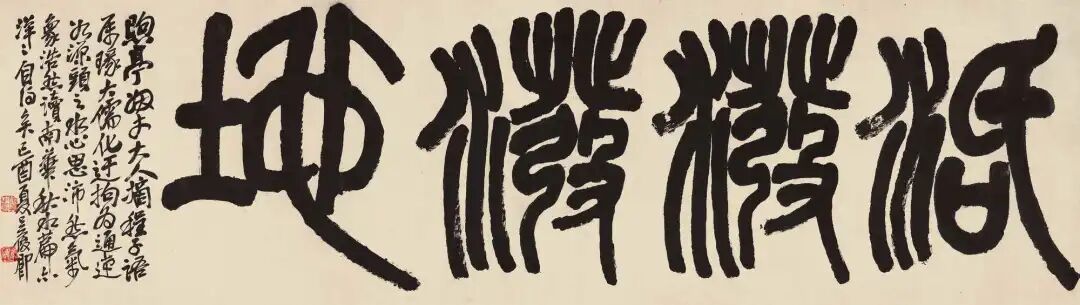 活潑潑地
煦亭姻丈大人摘程子語
屬瑑大儒化迂拘為通達
如源頭之水心思沛然氣
象浩然讀南華秋水篇亦
洋洋自得矣己酉夏吳俊卿